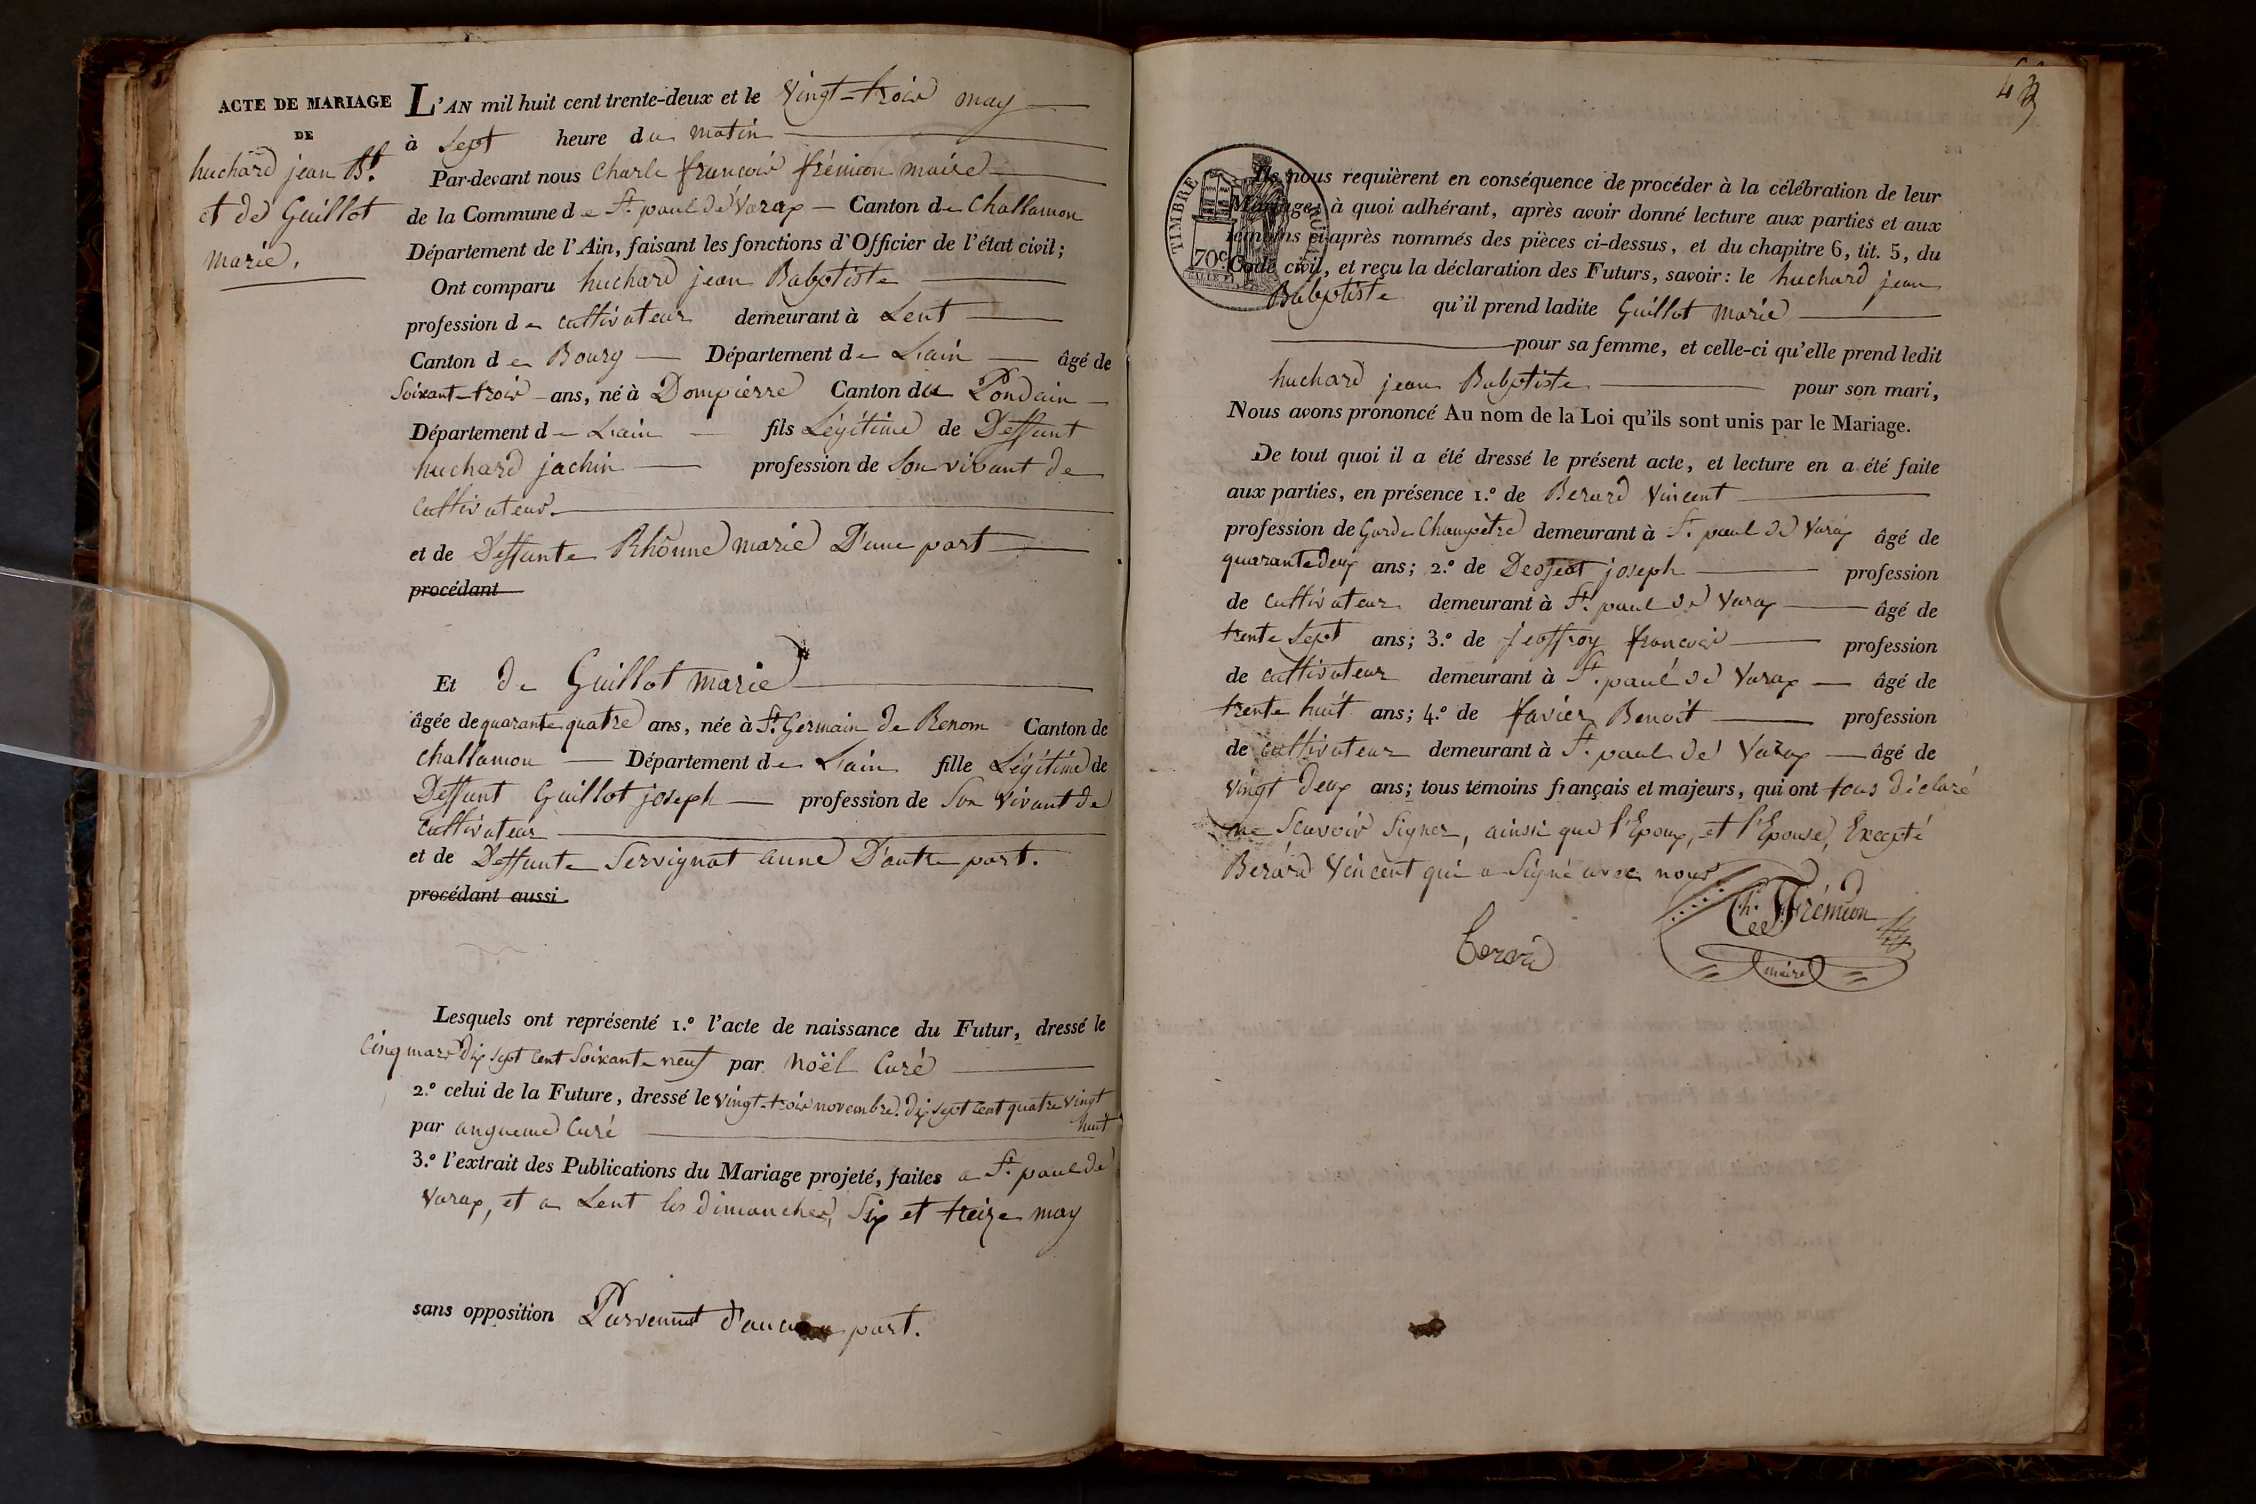 ACTE DE MARIAGE
DE
huchard jean Bt.
et de Guillot
marie.
L'AN mil huit cent trente-deux et le vingt-trois may
à Sept heure du matin
Par-devant nous Charle françois frémion maire
de la Commune de St. paul de Varax Canton de Challamon
Département de l'Ain, faisant les fonctions d'Officier de l'état civil;
Ont comparu huchard jean Babptiste
profession de cultivateur demeurant à Lent
Canton de Bourg Département de Lain âgé de
Soixant-trois ans, né à Dompierre Canton du Pondain
Département de Lain fils Légitime de Deffunt
huchard jachin profession de Son vivant de
cultivateur
et de Deffunte Rhônne marie D'une part
procédant
Et de Guillot marie
âgée de quarante quatre ans, née à St. Germain de Renom Canton de
Challamon Département de Lain fille Légitime de
Deffunt Guillot joseph profession de Son vivant de
cultivateur
et de Deffunte Servignat anne D'autre part.
procédant aussi
Lesquels ont représenté 1.º l'acte de naissance du Futur, dressé le
Cinq mars dix sept cent Soixante neuf par Noël Curé
2.º celui de la Future, dressé le vingt-trois novembre dix sept cent quatre vingt
huit
par angueme Curé
3.º l'extrait des Publications du Mariage projeté, faites a St. paul de
Varax, et a Lent les dimanches, Six et treize may
sans opposition Parvennut d'aucune part.
43
TIMBRE
70c
Ils nous requièrent en conséquence de procéder à la célébration de leur
Mariage; à quoi adhérant, après avoir donné lecture aux parties et aux
témoins ci-après nommés des pièces ci-dessus, et du chapitre 6, tit. 5, du
Code civil, et reçu la déclaration des Futurs, savoir: le huchard jean
Babptiste qu'il prend ladite Guillot marie
pour sa femme, et celle-ci qu'elle prend ledit
huchard jean Babptiste pour son mari,
Nous avons prononcé Au nom de la Loi qu'ils sont unis par le Mariage.
De tout quoi il a été dressé le présent acte, et lecture en a été faite
aux parties, en présence 1.º de Berard Vincent
profession de Garde Champètre demeurant à St. paul de Varax âgé de
quarante deux ans; 2.º de Desjeat joseph profession
de cultivateur demeurant à St. paul de Varax âgé de
trente Sept ans; 3.º de jeoffroy françois profession
de cultivateur demeurant à St. paul de Varax âgé de
trente huit ans; 4.º de favier Benoit profession
de cultivateur demeurant à St. paul de Varax âgé de
vingt deux ans; tous témoins français et majeurs, qui ont tous déclaré
ne Scavoir Signer, ainsi que l'Epoux, et l'Epouse, Excepté
Berard Vincent qui a Signé avec nous
Berard
Ch. Frémion
maire